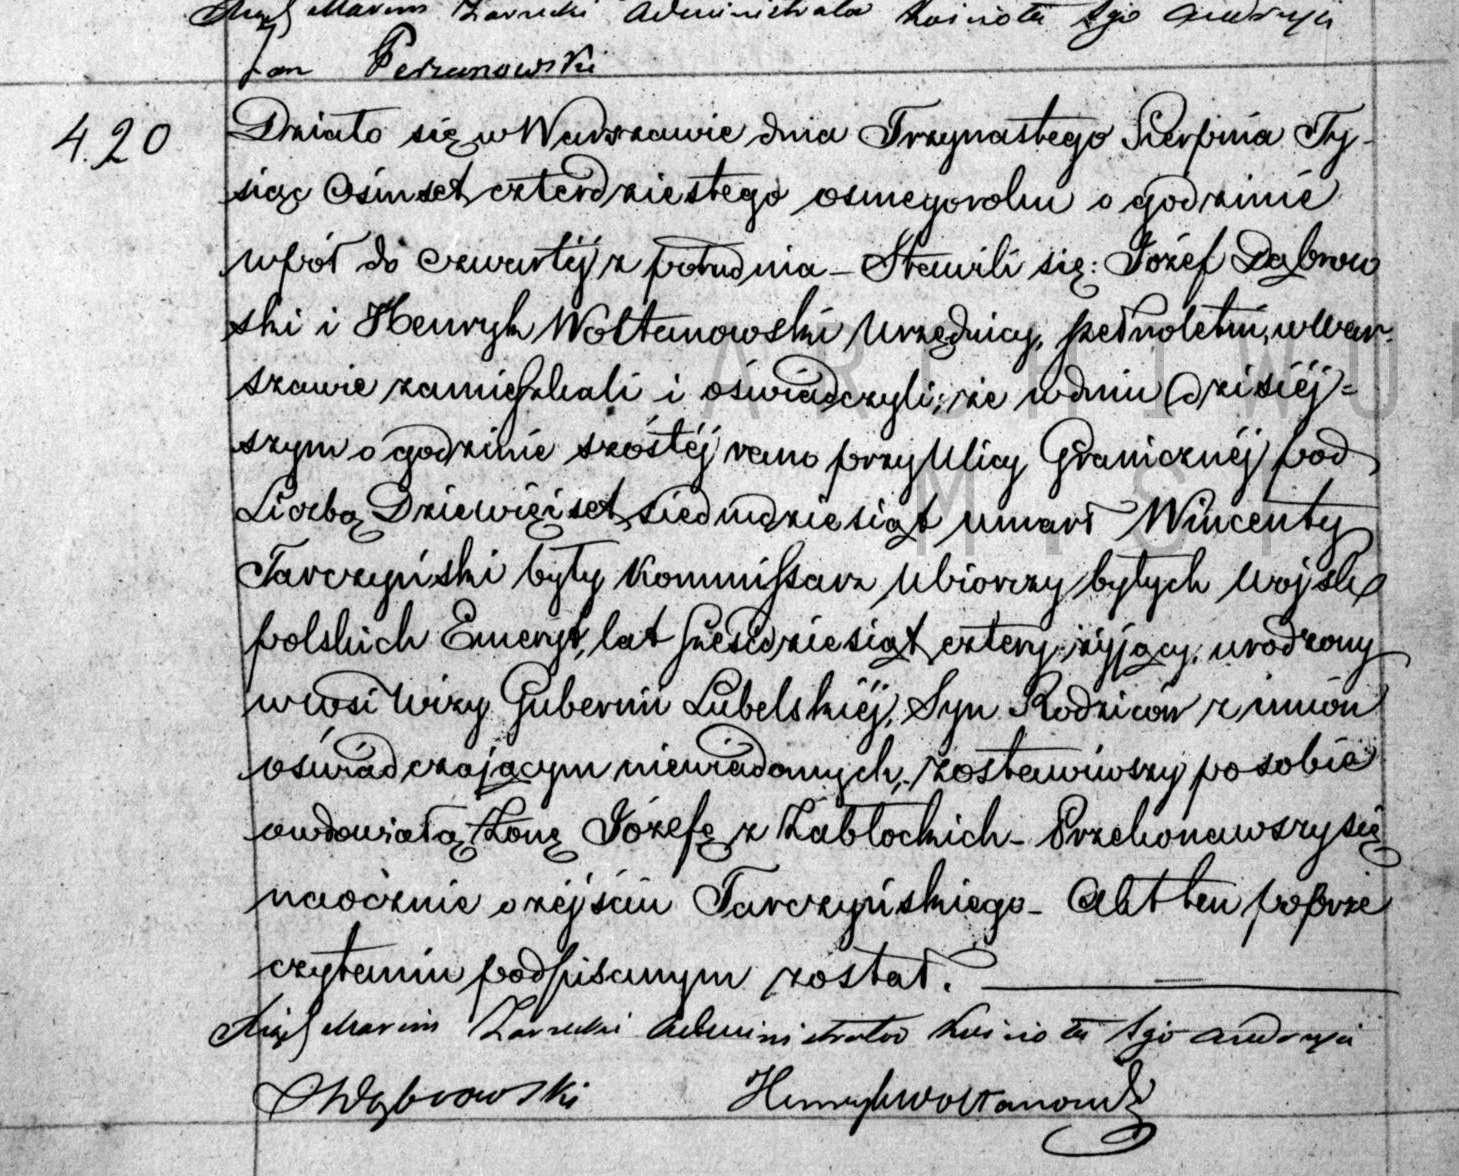 Xiądz Marcin Zawadzki Administrator Kościoła Sgo Andrzeja
Jan Perzanowski
420
Działo się w Warszawie dnia Trzynastego Sierpnia Ty-
siąc Ośmset czterdziestego osmego roku o godzinie
wpół do czwartéj z południa – Stawili się: Józef Dąbrow
ski i Henryk Wołtanowski Urzędnicy, pełnoletni, w War-
szawie zamieszkali i oświadczyli; że w dniu dzisiéj=
szym o godzinie szóstéj rano przy Ulicy Granicznéj pod
Liczbą Dziewięćset siedmdziesiąt umarł Wincenty
Tarczyński były Kommissarz Ubiorczy byłych Wojsk
polskich Emeryt, lat sześćdziesiąt cztery żyjący, urodzony
w wsi Uizy Gubernii Lubelskiéj, Syn Rodziców z imion
oświadczającym niewiadomych, zostawiwszy po sobie
owdowiałą Żonę Józefę z Zabłockich – Przekonawszy się
naocznie o zejściu Tarczyńskiego – Akt ten po prze
czytaniu podpisanym został.
Xiądz Marcin Administrator Kościoła Sgo Andrzeja
JDąbrowski Henryk Wołtanowski
ARCHIWU
M ST